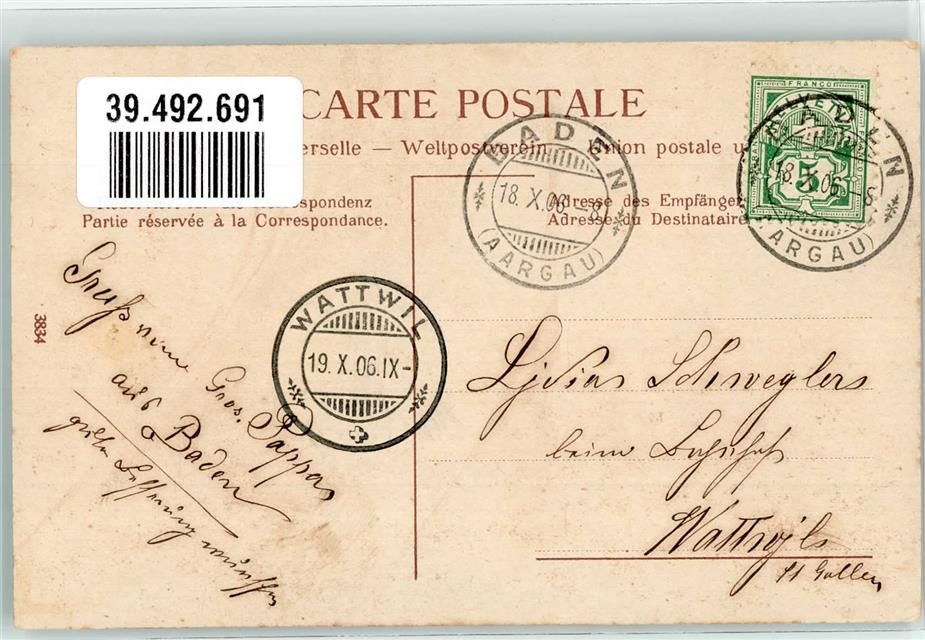 39.492.691
CARTE POSTALE
erselle — Weltpostverein — Union postale u
spondenz
Partie réservée à la Correspondance.
Adresse des Empfänger
Adresse du Destinataire
FRANCO
5
BADEN
18. X. 06. - 8
(AARGAU)
BADEN
18. X. 06. - 8
(AARGAU)
WATTWIL
19. X. 06. IX -
3834
Gruß
Gros. Pappas
aus Baden
Lydias Schweglers
beim Bahnhof
Wattwyls
St Gallen